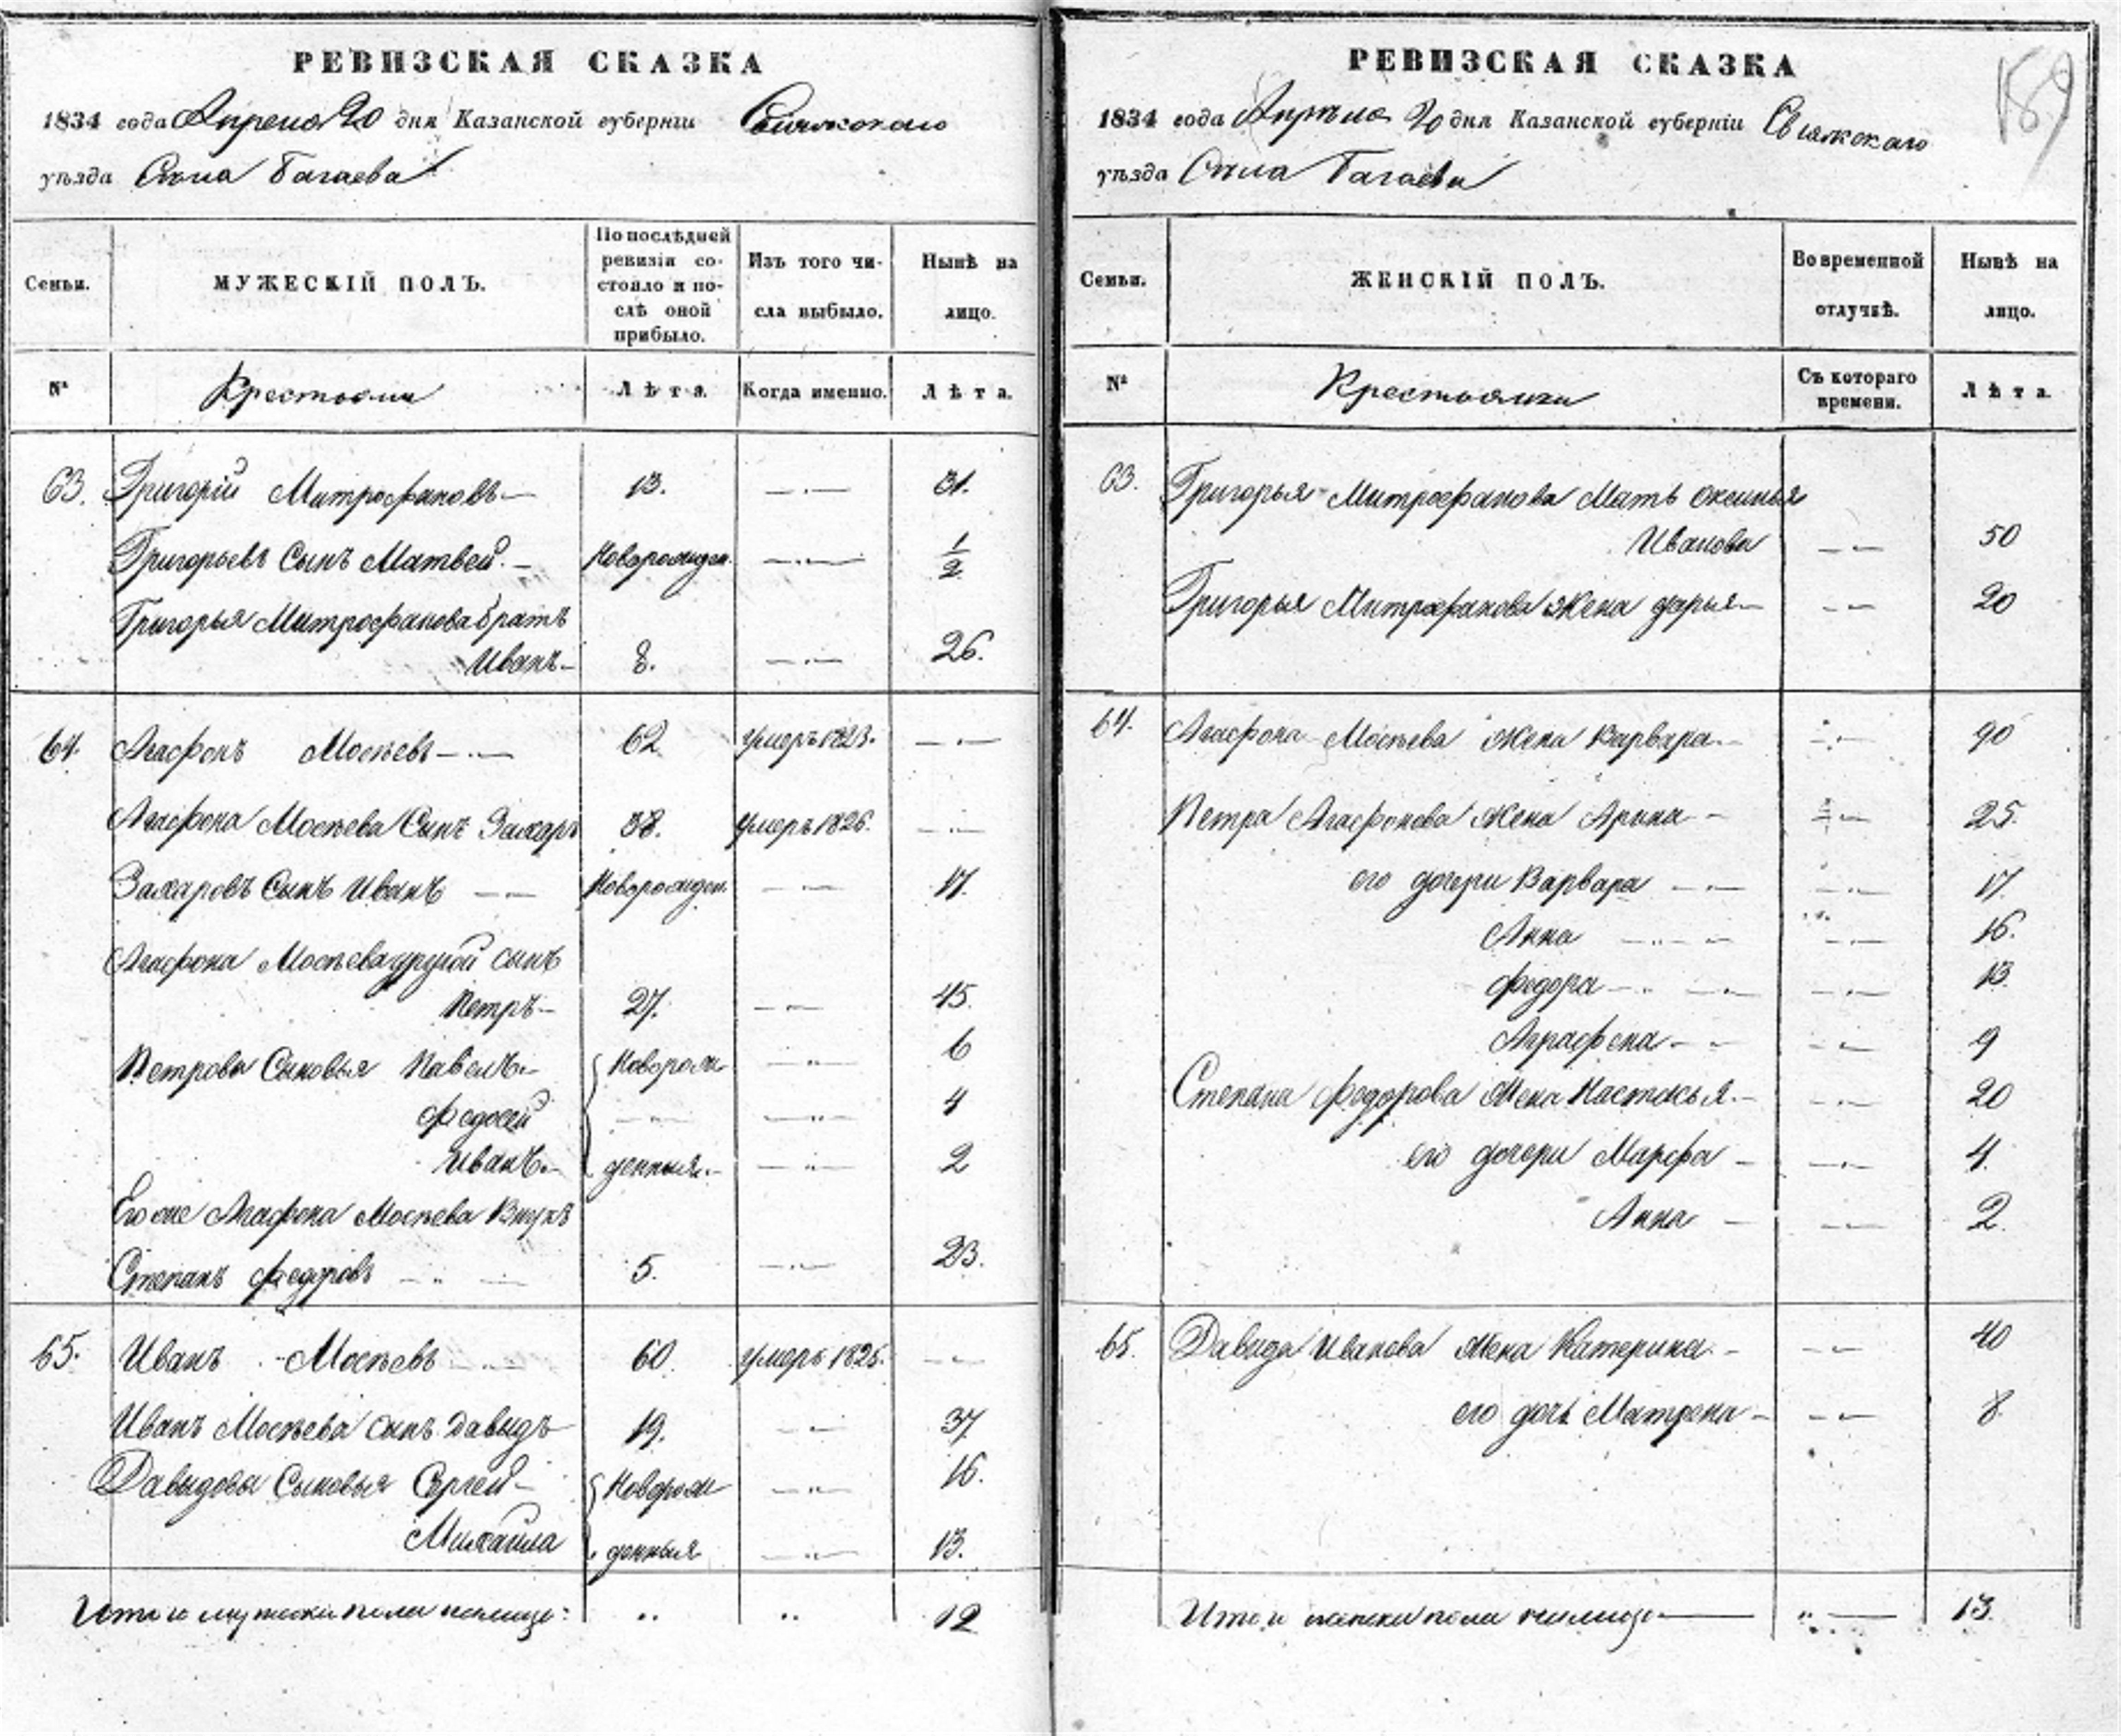 РЕВИЗСКАЯ СКАЗКА
1834 года Апреля 20 дня Казанской губерніи Свіяжскаго
уѣзда Сѣла Багаева
Семьи.
МУЖЕСКІЙ ПОЛЪ.
По послѣдней ревизіи со-
стояло и по-
слѣ оной
прибыло.
Изъ того чи-
сла выбыло.
Нынѣ на
лицо.
№
Крестьяни
Лѣта.
Когда именно.
Лѣта.
63. Григорій Митрофановъ 13. 31.
Григорьевъ Сынъ Матвей Новорожден. 1/2
Григорья Митрофанова братъ
Иванъ 8. 26.
64. Агафонъ Мосѣевъ 62 умеръ 1823.
Агафона Мосѣева Сынъ Захаръ 38. умеръ 1826.
Захаровъ Сынъ Иванъ Новорожден. 17.
Агафона Мосѣева другой сынъ
Петръ 27. 45.
Петровы Сыновья Павелъ Новорож 6
Федосей 4
Иванъ денныя 2
Его же Агафона Мосѣева Внукъ
Степанъ Федоровъ 5. 23.
65. Иванъ Мосѣевъ 60. умеръ 1825.
Иванъ Мосѣева сынъ Давыдъ 19. 37
Давыдовы Сыновья Сергей Новорож 16.
Михаила денныя 13.
Итого мужска пола налицо: 12
РЕВИЗСКАЯ СКАЗКА
159
1834 года Апрѣля 20 дня Казанской губерніи Свіяжскаго
уѣзда Сѣла Багаева
Семьи.
ЖЕНСКІЙ ПОЛЪ.
Во временной
отлучкѣ.
Нынѣ на
лицо.
№
Крестьянки
Съ котораго
времени.
Лѣта.
63. Григорья Митрофанова Мать Оксинья
Иванова 50
Григорья Митрофанова Жена Дарья 20
64. Агафона Мосѣева Жена Варвара 90
Петра Агафонова Жена Арина 25.
его дочери Варвара 17.
Анна 16.
Федора 13.
Аграфена 9
Степана Федорова Жена Настасья 20
его дочери Марфа 4.
Анна 2.
65. Давыда Иванова Жена Катерина 40
его дочь Матрена 8.
Итого женска пола налицо 13.